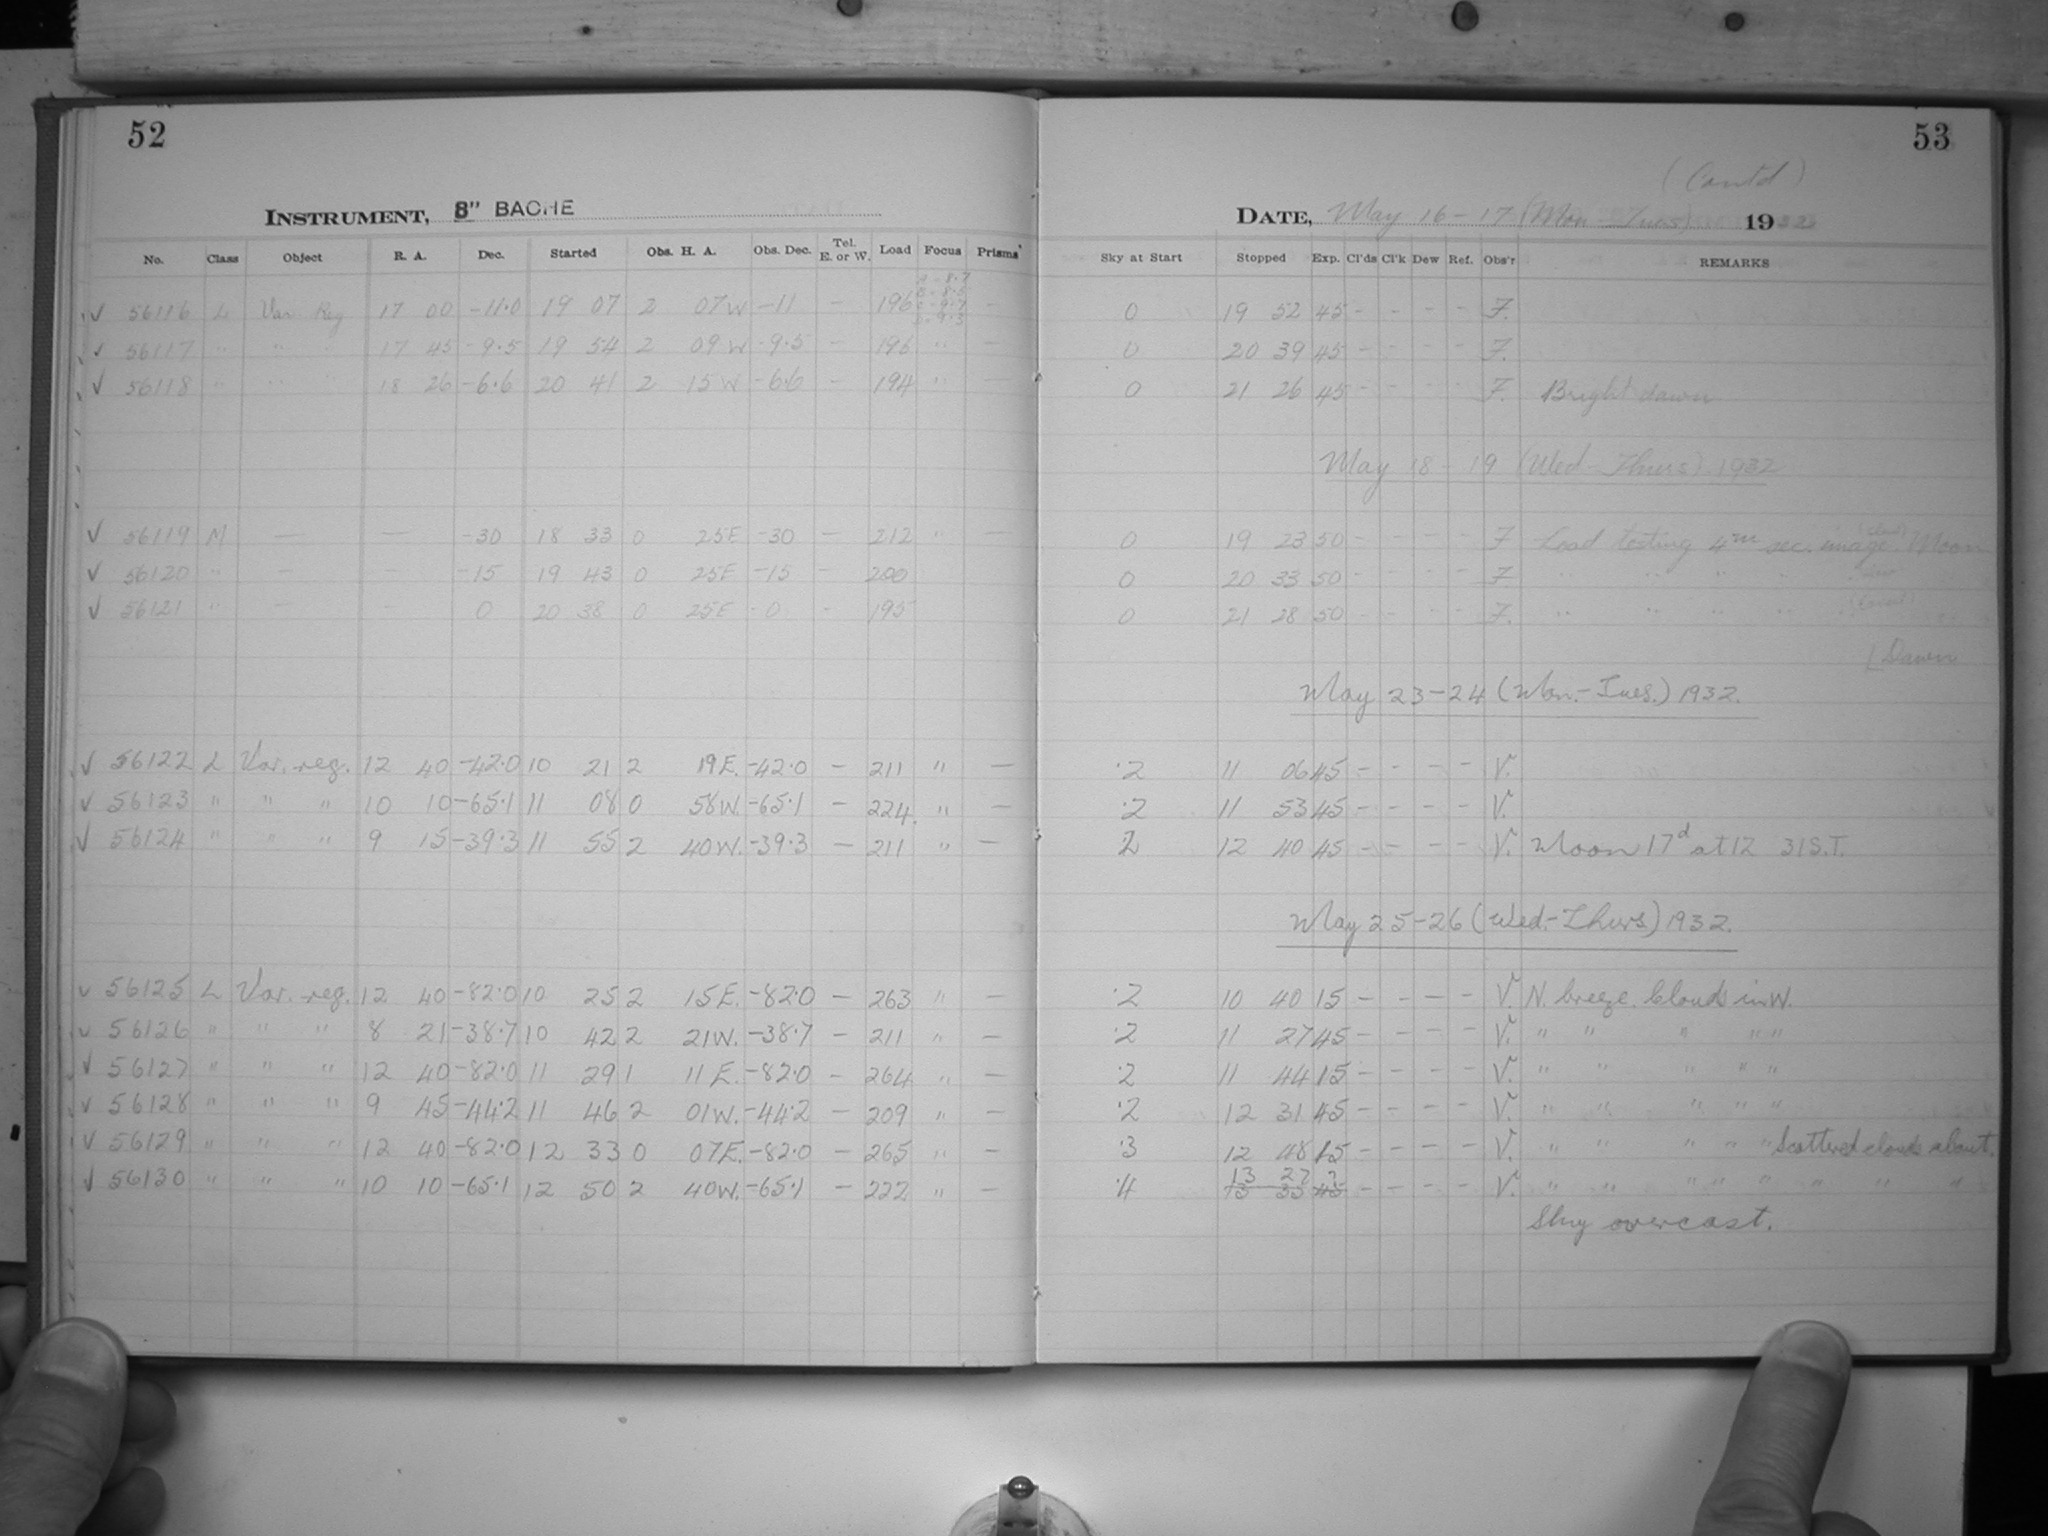 52
INSTRUMENT, 8" BACHE
No. Class Object R. A. Dec. Started Obs. H. A. Obs. Dec. Tel. E. or W. Load Focus Prisms
✓ 56116 L Var. Reg 17 00 -11.0 19 07 2 07W -11 - 196 -
✓ 56117 " " " 17 45 -9.5 19 54 2 09W -9.5 - 196 " -
✓ 56118 " " " 18 26 -6.6 20 41 2 15W -6.6 - 194 " -
✓ 56119 M - - -30 18 33 0 25E -30 - 212 " -
✓ 56120 " - - -15 19 43 0 25E -15 - 200
✓ 56121 " - - 0 20 38 0 25E 0 - 195
✓ 56122 L Var. reg. 12 40 -42.0 10 21 2 19E. -42.0 - 211 " -
✓ 56123 " " " 10 10 -65.1 11 08 0 58W. -65.1 - 224 " -
✓ 56124 " " " 9 15 -39.3 11 55 2 40W. -39.3 - 211 " -
✓ 56125 L Var. reg. 12 40 -82.0 10 25 2 15E. -82.0 - 263 " -
✓ 56126 " " " 8 21 -38.7 10 42 2 21W. -38.7 - 211 " -
✓ 56127 " " " 12 40 -82.0 11 29 1 11E. -82.0 - 264 " -
✓ 56128 " " " 9 45 -44.2 11 46 2 01W. -44.2 - 209 " -
✓ 56129 " " " 12 40 -82.0 12 33 0 07E. -82.0 - 265 " -
✓ 56130 " " " 10 10 -65.1 12 50 2 40W. -65.1 - 222 " -
53
(Contd)
DATE, May 16-17 (Mon-Tues) 1932
Sky at Start Stopped Exp. Cl'ds Cl'k Dew Ref. Obs'r REMARKS
0 19 52 45 - - - - F.
0 20 39 45 - - - - F.
0 21 26 45 - - - - F. Bright dawn
May 18-19 (Wed-Thurs). 1932
0 19 23 50 - - - - F Load testing 4m sec. image. Moon
0 20 33 50 - - - - F " " " "
0 21 28 50 - - - - F. " " " "
[Dawn
May 23-24 (Mon.-Tues.) 1932.
.2 11 06 45 - - - - V.
.2 11 53 45 - - - - V.
.2 12 40 45 - - - - V. Moon 17d at 12 31 S.T.
May 25-26 (Wed.-Thurs) 1932.
.2 10 40 15 - - - - V. N. breeze. Clouds in W.
.2 11 27 45 - - - - V. " " " " "
.2 11 44 15 - - - - V. " " " " "
.2 12 31 45 - - - - V. " " " " "
.3 12 48 15 - - - - V. " " " " " Scattered clouds about.
.4 13 27 - - - - V. " " " " " " " "
Sky overcast.